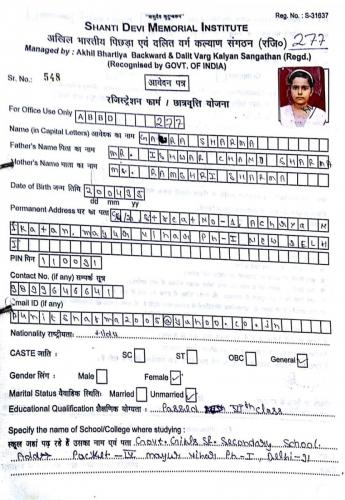 "वसुधैव कुटुम्बकम्"
Reg. No. : S-31637
SHANTI DEVI MEMORIAL INSTITUTE
अखिल भारतीय पिछड़ा एवं दलित वर्ग कल्याण संगठन (रजि०) 277
Managed by : Akhil Bhartiya Backward & Dalit Varg Kalyan Sangathan (Regd.)
(Recognised by GOVT. OF INDIA)
Sr. No.: 548
आवेदन पत्र
रजिस्ट्रेशन फार्म / छात्रवृत्ति योजना
For Office Use Only ABBD 277
Name (in Capital Letters) आवेदक का नाम SHARMA
Father's Name पिता का नाम MR. ISHWAR CHAND SHARMA
Mother's Name माता का नाम RAMSHRI SHARMA
Date of Birth जन्म तिथि 200495
dd mm yy
Permanent Address घर का पता Street No-1, Achrya
Niketan, mayur vihar Ph-I NEW DELH
I
PIN पिन 110091
Contact No. (if any) सम्पर्क सूत्र
8393646451
Email ID (if any)
punitsharma2005@yahoo.co.in
Nationality राष्ट्रीयता: भारतीय
CASTE जाति : SC ST OBC General ✓
Gender लिंग : Male Female ✓
Marital Status वैवाहिक स्थिति: Married Unmarried ✓
Educational Qualification शैक्षणिक योग्यता : Passed VIth class
Specify the name of School/College where studying :
स्कूल जहां पढ़ रहे हैं उसका नाम एवं पता Govt. Girls Sr. Secondary School
Address Pocket-IV, mayur vihar Ph-I, Delhi-91